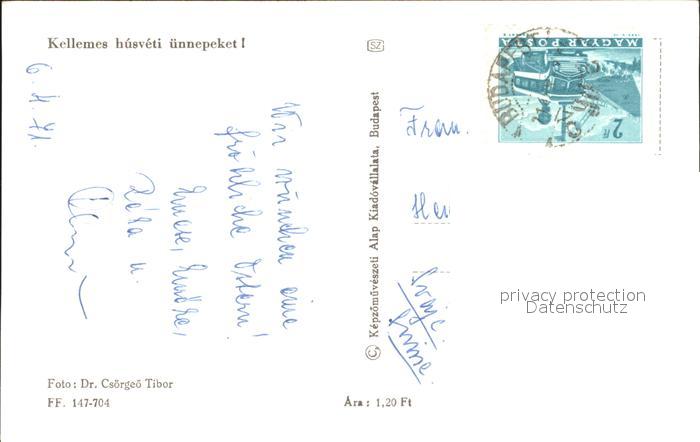 Kellemes húsvéti ünnepeket!
6. 4. 71.
Wir wünschen eine
fröhliche Ostern!
Emese, Endre,
Réka u.
Foto: Dr. Csörgeő Tibor
FF. 147-704
Ára: 1,20 Ft
SZ
© Képzőművészeti Alap Kiadóvállalata, Budapest
MAGYAR POSTA
2 Ft
BUDAPEST
Frau
Svájc
Suisse
privacy protection
Datenschutz